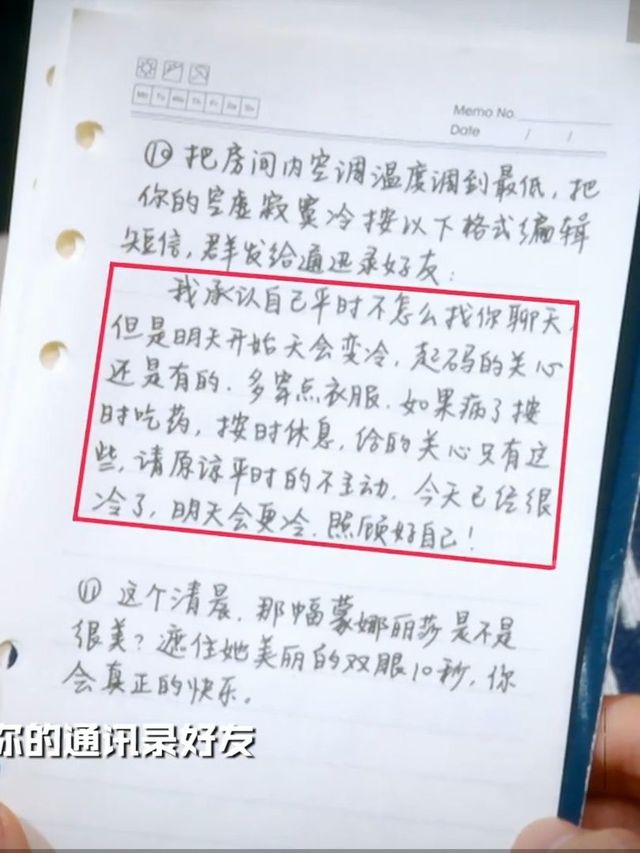 Mo Tu We Th Fr Sa Su
Memo No.
Date / /
⑩把房间内空调温度调到最低，把
你的空虚寂寞冷按以下格式编辑
短信，群发给通迅录好友：
我承认自己平时不怎么找你聊天，
但是明天开始天会变冷，起码的关心
还是有的．多穿点衣服．如果病了按
时吃药，按时休息，给的关心只有这
些，请原谅平时的不主动．今天已经很
冷了，明天会更冷．照顾好自己！
⑪这个清晨，那幅蒙娜丽莎是不是
很美？遮住她美丽的双眼10秒，你
会真正的快乐。
你的通讯录好友